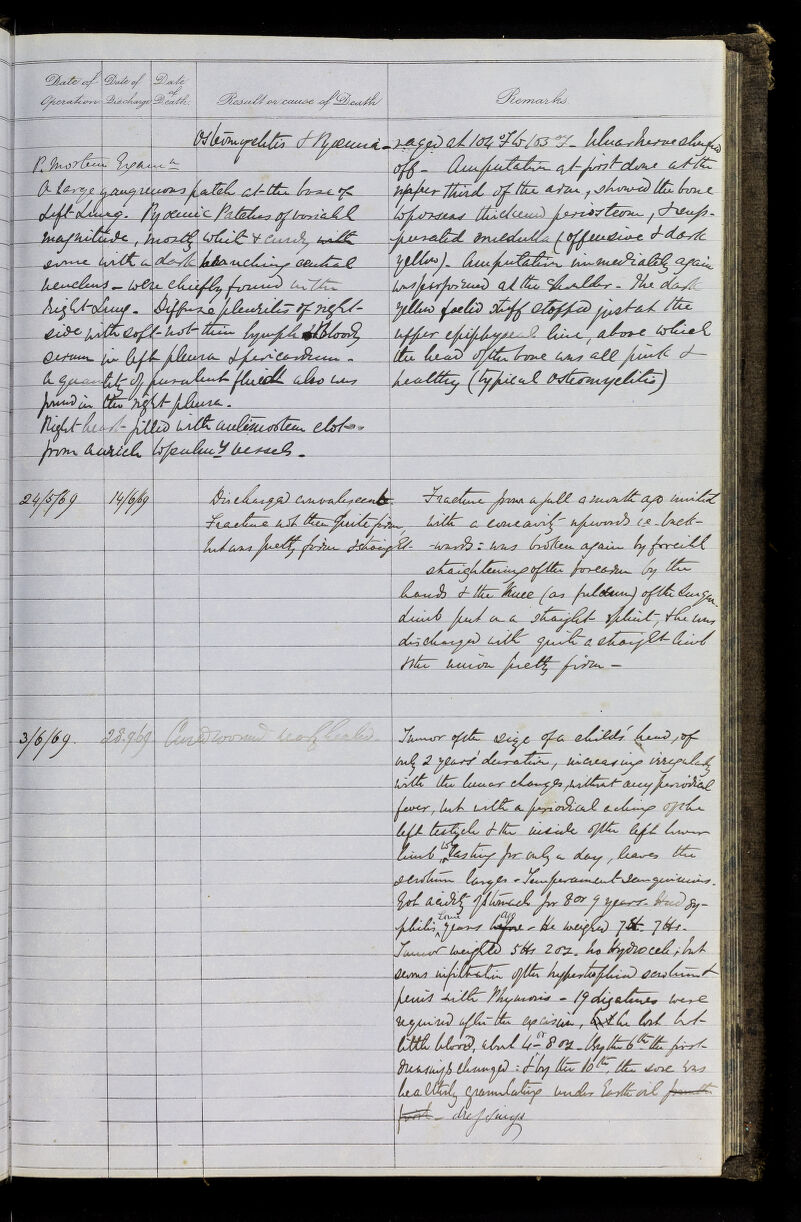 Date of Operation
Date of Discharge
Date of Death.
Result or cause of Death
Remarks.
Osteomyelitis & Pyaemia
P. Mortem Exam n
A large gangrenous patch at the base of
Left Lung. Pyaemic Patches of variable
magnitude, mostly white & curdy with
some with a dark branching central
nucleus - were chiefly found in the
Right Lung. Diffuse pleuritis of right
side with soft not thin lymph & bloody
serum in left pleura & pericardium -
A quantity of purulent fluid also was
found in the right pleura.
Right heart filled with antemortem clots
from auricle to pulmy vessels.
raged at 104 °F to 105 °F. Ulnar Nerve sloughed
off - Amputation at first done at the
upper third of the arm, showed the bone
to porous thickened periosteum, & supp-
purated medulla (offensive & dark
yellow). Amputation immediately again
was performed at the shoulder - The dark
yellow foetid stuff stopped just at the
upper epiphyseal line, above which
the head of the bone was all pink &
healthy (typical osteomyelitis)
24/5/69
14/6/69
Discharged convalescent.
Fracture not then quite firm,
but was pretty firm & straight.
Fracture from a fall a month ago united
with a concavity upwards ie back-
-wards: was broken again by forcible
straightening of the forearm by the
hands & the knee (as fulcrum) of the Surgeon
limb put on a straight splint, & he was
discharged with quite a straight limb
& the union pretty firm -
3/6/69.
28.9.69
Cured wound nearly healed.
Tumor of the size of a child's head, of
only 2 years' duration, increasing irregularly
with the lunar changes, without any periodical
fever, but with a periodical aching of the
left testicle & the inside of the left lower
limb lasting for only a day, leaves the
scrotum larger - Temperament sanguineous.
Got acidity of stomach for 8 or 9 years. Had sy-
philis some years ago - He weighed 7 St. 7 lbs.
Tumor weighed 5 lbs 2 oz. No Hydrocele; but
serous infiltration of the hypertrophied scrotum &
penis with Phymosis - 19 ligatures were
required after the excision, he lost but
little blood, about 4 or 8 oz - By the 6th the first
dressings changed: & by the 10th, the sore was
healthily granulating under Earth oil
dressings